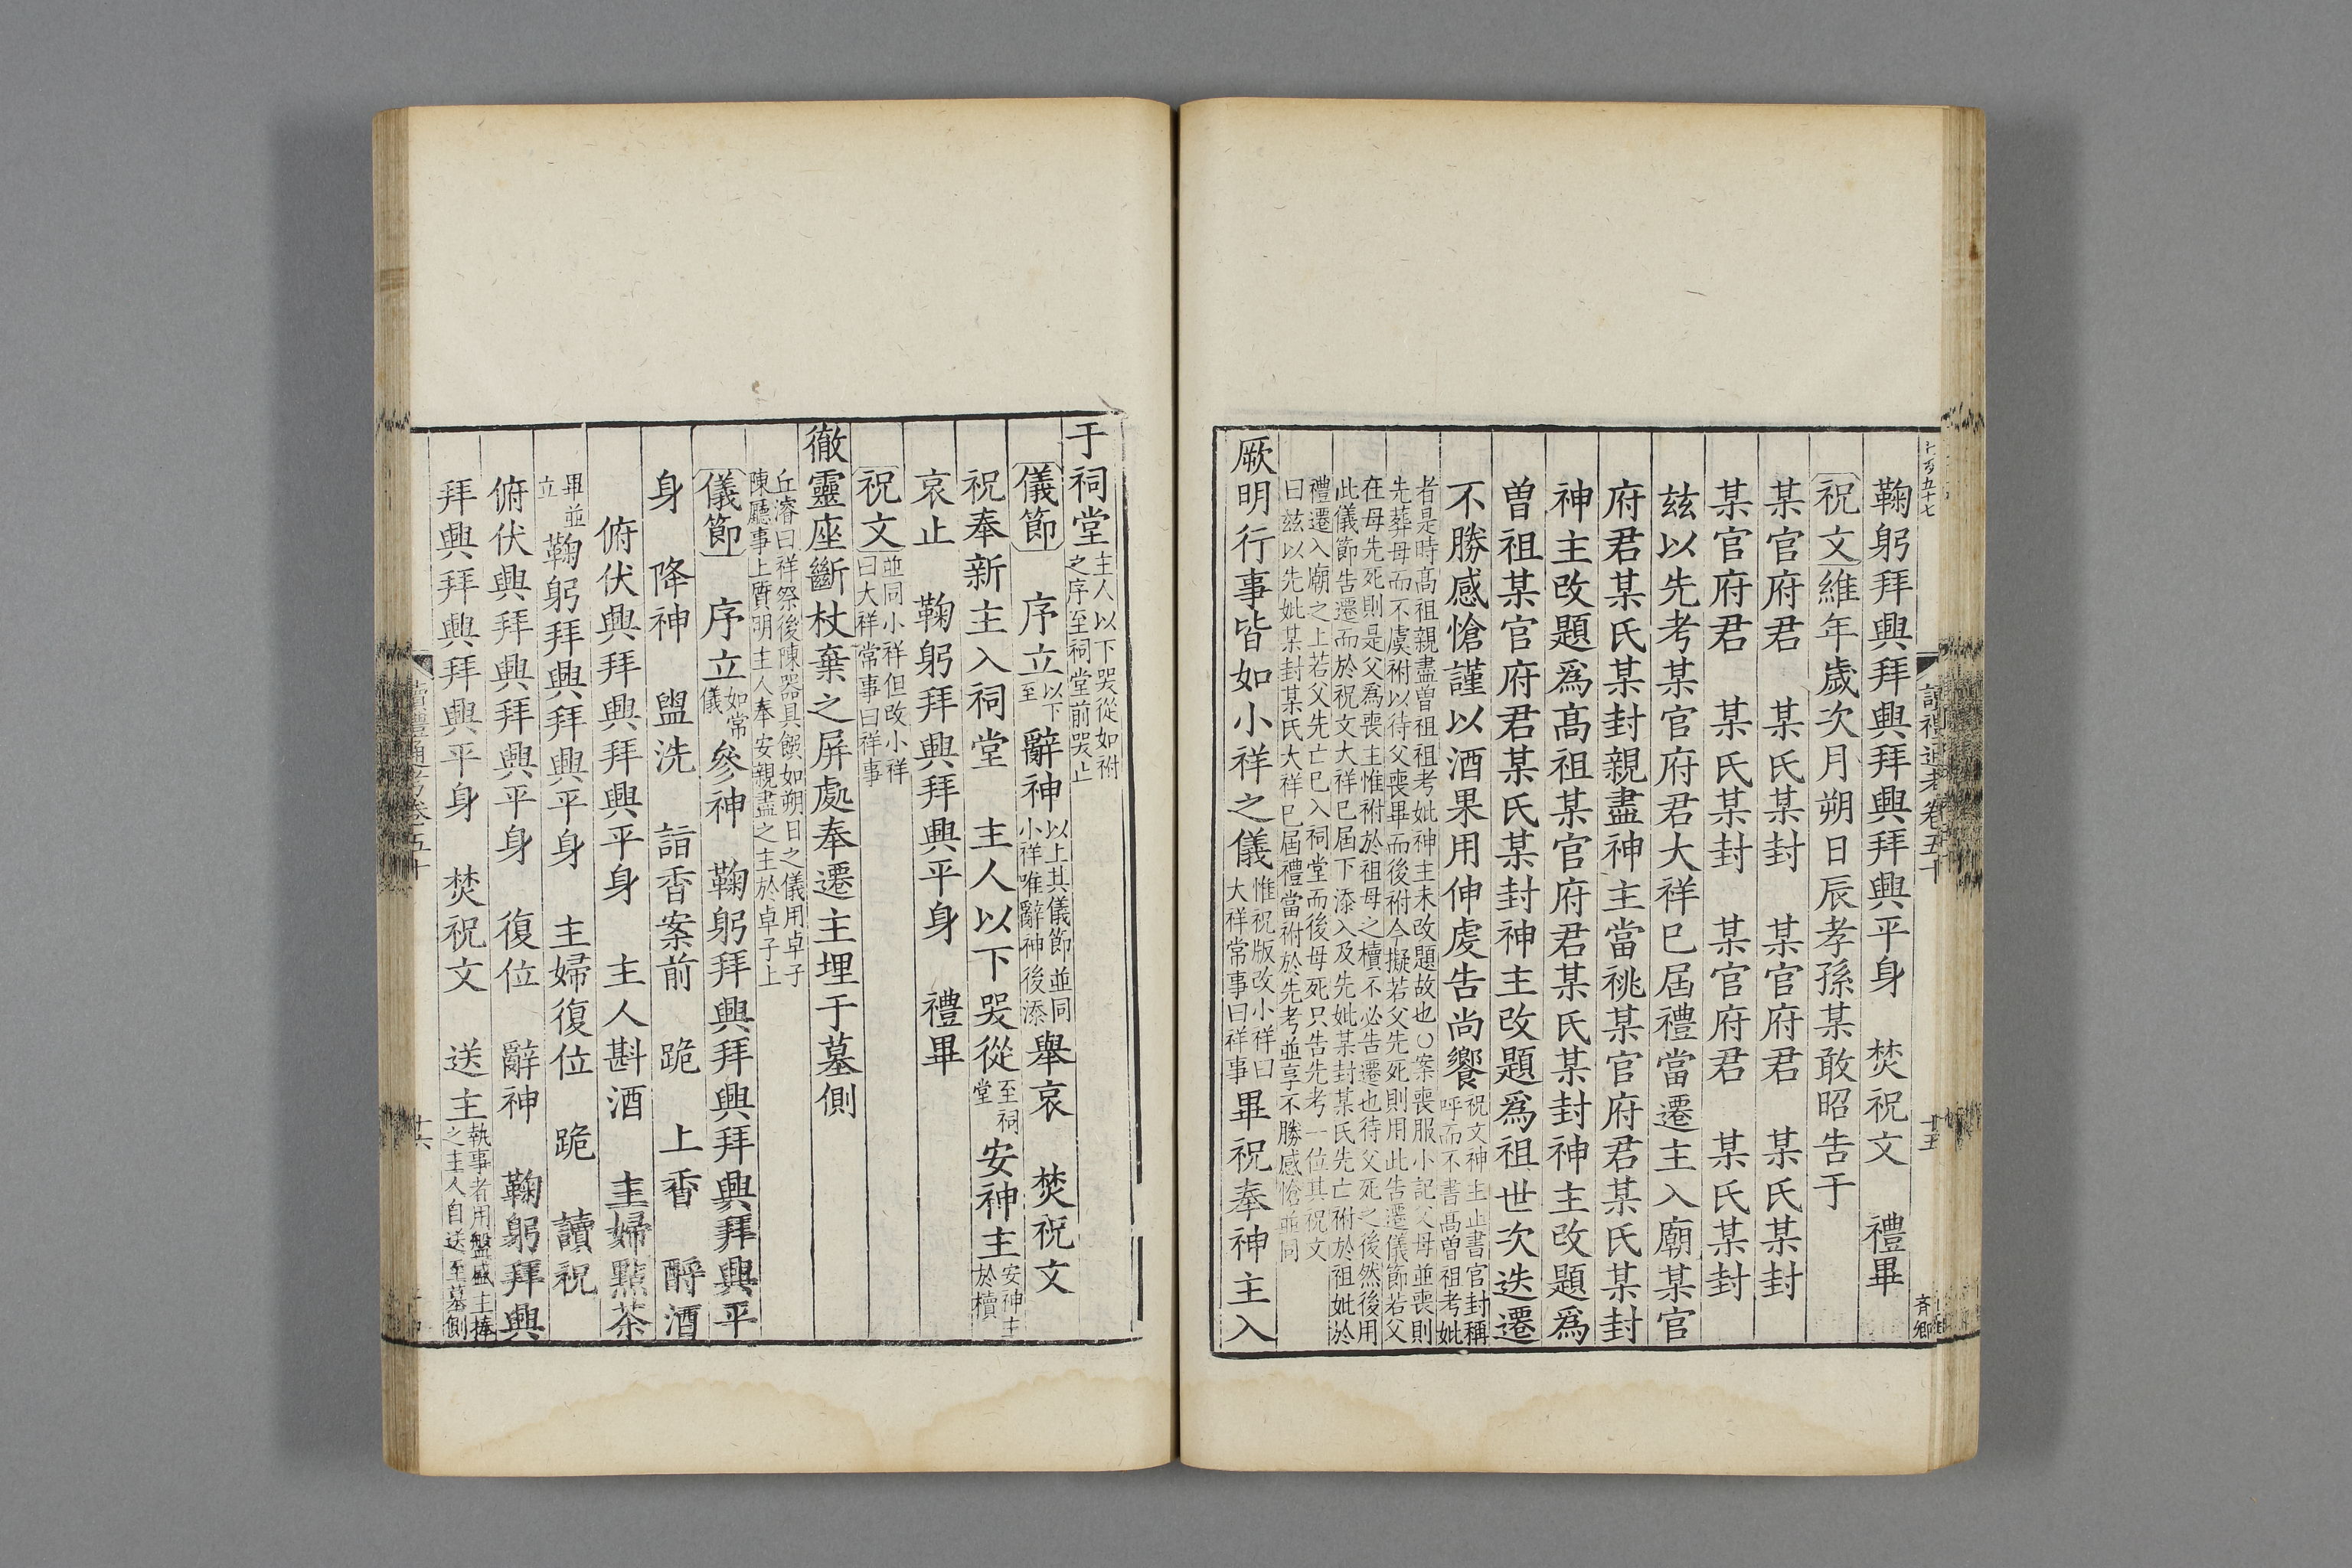 讀禮通考卷五十
十五
鞠躬拜興拜興拜興拜興平身　焚祝文　禮畢
祝文維年歲次月朔日辰孝孫某敢昭告于
某官府君　某氏某封　某官府君　某氏某封
某官府君　某氏某封　某官府君　某氏某封
兹以先考某官府君大祥已屆禮當遷主入廟某官
府君某氏某封親盡神主當祧某官府君某氏某封
神主改題爲高祖某官府君某氏某封神主改題爲
曾祖某官府君某氏某封神主改題爲祖世次迭遷
不勝感愴謹以酒果用伸虔告尚饗
祝文神主止書官封稱
呼而不書高曾祖考妣
者是時高祖親盡曾祖祖考妣神主未改題故也○案喪服小記父母並喪則
先葬母而不虞祔以待父喪畢而後祔今擬若父先死則用此告遷儀節若父
在母先死則是父爲喪主惟祔於祖母之櫝不必告遷也待父死之後然後用
此儀節告遷而於祝文大祥已屆下添入及先妣某封某氏先亡祔於祖妣於
禮遷入廟之上若父先亡已入祠堂而後母死只告先考一位其祝文
曰兹以先妣某封某氏大祥已屆禮當祔於先考並享不勝感愴並同
厥明行事皆如小祥之儀
惟祝版改小祥曰
大祥常事曰祥事
畢祝奉神主入
于祠堂
主人以下哭從如祔
之序至祠堂前哭止
儀節　序立
以下
至
辭神
以上其儀節並同
小祥唯辭神後添
舉哀　焚祝文
祝奉新主入祠堂　主人以下哭從
至祠
堂
安神主
安神主
於櫝
哀止　鞠躬拜興拜興平身　禮畢
祝文
並同小祥但改小祥
曰大祥常事曰祥事
徹靈座斷杖棄之屏處奉遷主埋于墓側
丘濬曰祥祭後陳器具饌如朔日之儀用卓子
陳廳事上質明主人奉安親盡之主於卓子上
儀節　序立
如常
儀
參神　鞠躬拜興拜興拜興拜興平
身　降神　盥洗　詣香案前　跪　上香　酹酒
俯伏興拜興拜興平身　主人斟酒　主婦點茶
畢並
立
鞠躬拜興拜興平身　主婦復位　跪　讀祝
俯伏興拜興拜興平身　復位　辭神　鞠躬拜興
拜興拜興拜興平身　焚祝文　送主
執事者用盤盛主捧
之主人自送至墓側
讀禮通考卷五十
十六